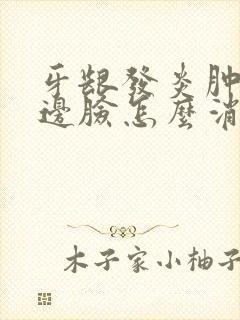 牙齦發炎肿
邊臉怎麼消
木子家小柚子